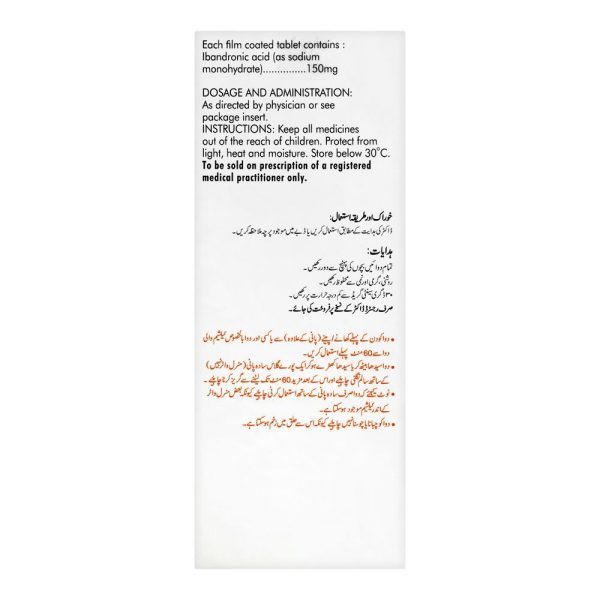 Each film coated tablet contains :
Ibandronic acid (as sodium
monohydrate)...............150mg
DOSAGE AND ADMINISTRATION:
As directed by physician or see
package insert.
INSTRUCTIONS: Keep all medicines
out of the reach of children. Protect from
light, heat and moisture. Store below 30°C.
To be sold on prescription of a registered
medical practitioner only.
خوراک اور طریقہ استعمال:
ڈاکٹر کی ہدایت کے مطابق استعمال کریں یا ڈبے میں موجود پرچہ ملاحظہ کریں۔
ہدایات:
تمام دوائیں بچوں کی پہنچ سے دور رکھیں۔
روشنی، گرمی اور نمی سے محفوظ رکھیں۔
۳۰ ڈگری سینٹی گریڈ سے کم درجہ حرارت پر رکھیں۔
صرف رجسٹرڈ ڈاکٹر کے نسخے پر فروخت کی جائے۔
• دوا کو دن کے پہلے کھانے / پینے (پانی کے علاوہ) سے یا کسی اور دوا بالخصوص کیلشیم والی
دوا سے 60 منٹ پہلے استعمال کریں۔
• دوا سیدھا بیٹھ کر یا سیدھا کھڑے ہو کر ایک پورے گلاس سادہ پانی (منرل واٹر نہیں)
کے ساتھ سالم نگلنی چاہیے اور اس کے بعد مزید 60 منٹ تک لیٹنے سے گریز کرنا چاہیے۔
• نوٹ کیجئے کہ دوا صرف سادہ پانی کے ساتھ استعمال کرنی چاہیے کیونکہ بعض منرل واٹر
کے اندر کیلشیم موجود ہو سکتا ہے۔
• دوا کو چبانا یا چوسنا نہیں چاہیے کیونکہ اس سے حلق میں زخم ہو سکتا ہے۔